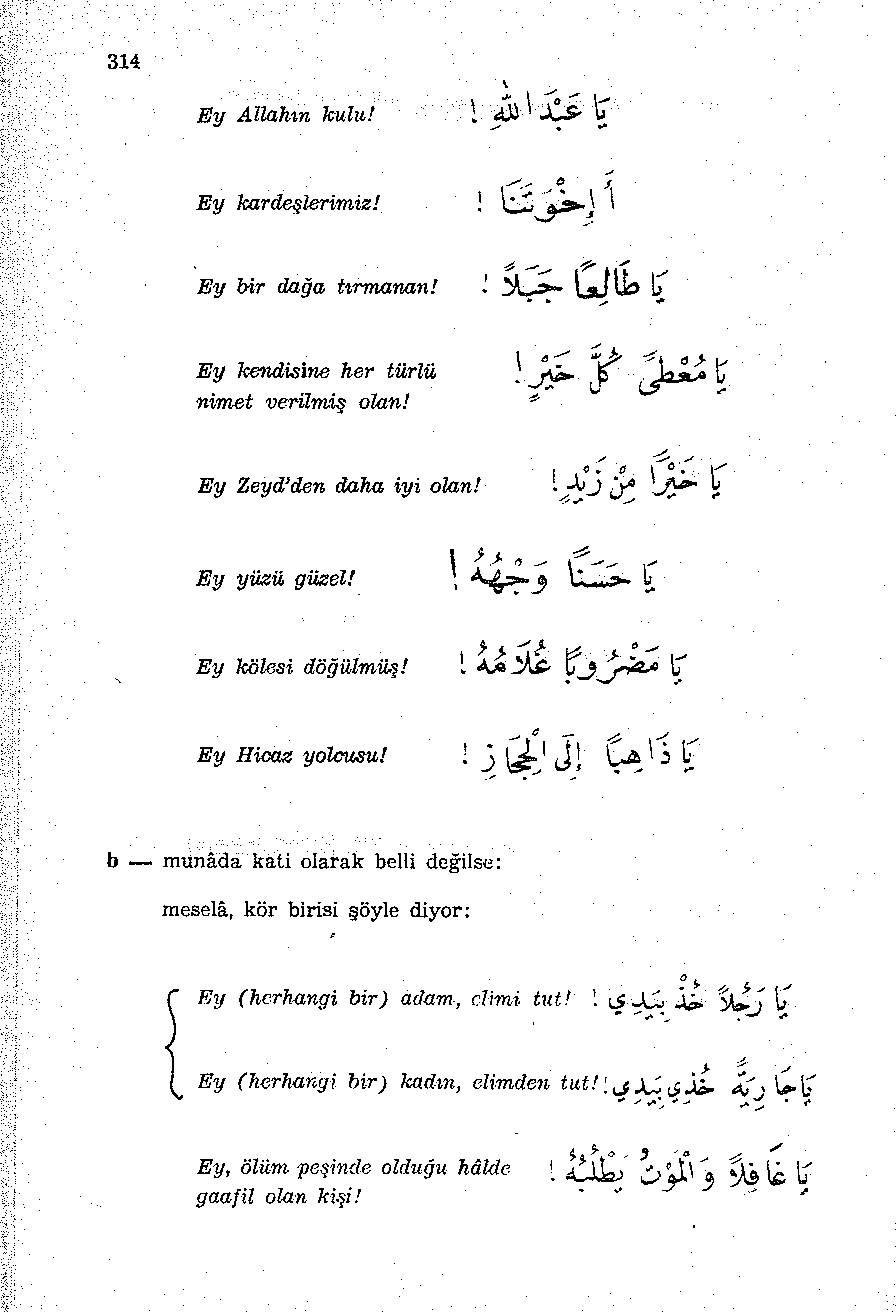 314
Ey Allahın kulu! يَا عَبْدَ اللّٰهِ !
Ey kardeşlerimiz! أَ إِخْوَتَنَا !
Ey bir dağa tırmanan! يَا طَالِعًا جَبَلاً !
Ey kendisine her türlü يَا مُعْطًى كُلَّ خَيْرٍ !
nimet verilmiş olan!
Ey Zeyd'den daha iyi olan! يَا خَيْرًا مِنْ زَيْدٍ !
Ey yüzü güzel! يَا حَسَنًا وَجْهُهُ !
Ey kölesi döğülmüş! يَا مَضْرُوبًا غُلَامُهُ !
Ey Hicaz yolcusu! يَا ذَاهِبًا إِلَى الْحِجَازِ !
b — munâda kati olarak belli değilse:
meselâ, kör birisi şöyle diyor:
Ey (herhangi bir) adam, elimi tut! يَا رَجُلاً خُذْ بِيَدِي !
Ey (herhangi bir) kadın, elimden tut! يَا جَارِيَةً خُذِي بِيَدِي !
Ey, ölüm peşinde olduğu hâlde يَا غَافِلاً وَ الْمَوْتُ يَطْلُبُهُ !
gaafil olan kişi!